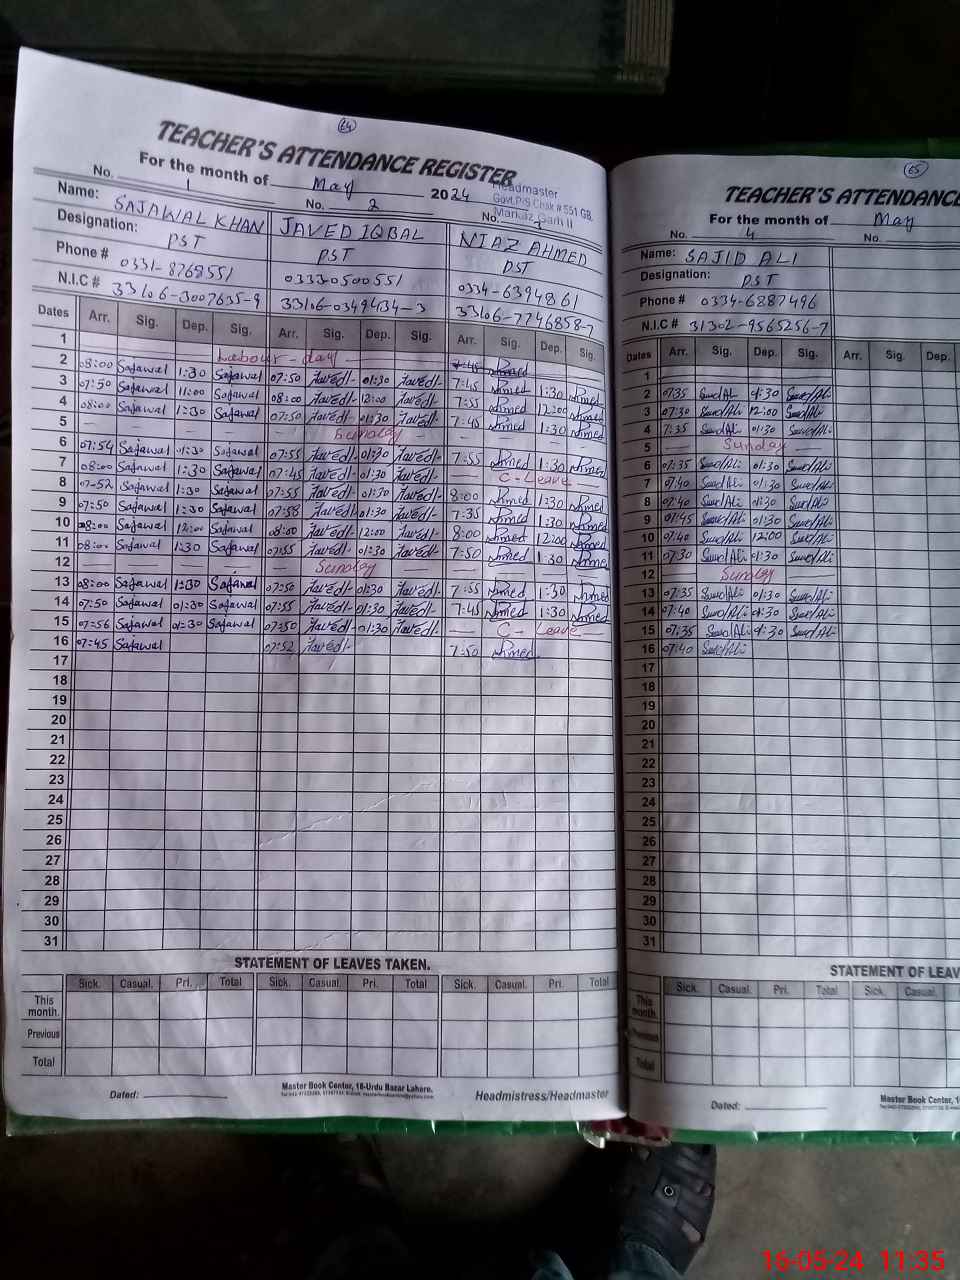 64
TEACHER'S ATTENDANCE REGISTER
For the month of May 2024
Headmaster
Govt.P/S Chak # 551 GB,
Markaz Garh II
No. 1 No. 2 No.
Name: SAJAWAL KHAN JAVED IQBAL NIAZ AHMED
Designation: PST PST PST
Phone # 0331-8768551 03330500551 0334-6394861
N.I.C # 33106-3007635-9 33106-0349434-3 33106-7746858-7
Dates Arr. Sig. Dep. Sig. Arr. Sig. Dep. Sig. Arr. Sig. Dep. Sig.
1 Labour-day
2 08:00 Sajawal 1:30 Sajawal 07:50 Javed 01:30 Javed 7:45 Ahmed 1:30 Ahmed
3 07:50 Sajawal 11:00 Sajawal 08:00 Javed 12:00 Javed 7:55 Ahmed 12:00 Ahmed
4 08:00 Sajawal 1:30 Sajawal 07:50 Javed 01:30 Javed 7:40 Ahmed 1:30 Ahmed
5 Sunday
6 07:54 Sajawal 01:30 Sajawal 07:55 Javed 01:30 Javed 7:55 Ahmed 1:30 Ahmed
7 08:00 Sajawal 1:30 Sajawal 07:45 Javed 01:30 Javed C-Leave
8 07-52 Sajawal 1:30 Sajawal 07:55 Javed 01:30 Javed 8:00 Ahmed 1:30 Ahmed
9 07:50 Sajawal 1:30 Sajawal 07:58 Javed 01:30 Javed 7:35 Ahmed 1:30 Ahmed
10 08:00 Sajawal 12:00 Sajawal 08:00 Javed 12:00 Javed 8:00 Ahmed 12:00 Ahmed
11 08:00 Sajawal 1:30 Sajawal 07:55 Javed 01:30 Javed 7:50 Ahmed 1:30 Ahmed
12 Sunday
13 08:00 Sajawal 1:30 Sajawal 07:50 Javed 01:30 Javed 7:55 Ahmed 1:30 Ahmed
14 07:50 Sajawal 01:30 Sajawal 07:55 Javed 01:30 Javed 7:45 Ahmed 1:30 Ahmed
15 07:56 Sajawal 01:30 Sajawal 07:50 Javed 01:30 Javed C-Leave
16 07:45 Sajawal 07:52 Javed 7:50 Ahmed
17
18
19
20
21
22
23
24
25
26
27
28
29
30
31
STATEMENT OF LEAVES TAKEN.
Sick. Casual. Pri. Total Sick. Casual. Pri. Total Sick. Casual. Pri. Total
This month.
Previous
Total
Dated:
Master Book Center, 16-Urdu Bazar Lahore.
Headmistress/Headmaster
65
TEACHER'S ATTENDANCE
For the month of May
No. 4 No.
Name: SAJID ALI
Designation: PST
Phone # 0334-6887496
N.I.C # 31302-9565256-7
Dates Arr. Sig. Dep. Sig. Arr. Sig. Dep.
1
2 07:35 01:30
3 07:30 12:00
4 7:35 01:30
5 Sunday
6 07:35 01:30
7 07:40 01:30
8 07:40 01:30
9 07:45 01:30
10 07:40 12:00
11 07:30 01:30
12 Sunday
13 07:35 01:30
14 07:40 01:30
15 07:35 01:30
16 07:40
17
18
19
20
21
22
23
24
25
26
27
28
29
30
31
STATEMENT OF LEAV
Sick. Casual. Pri. Total Sick. Casual.
This month.
Previous
Total
Dated:
Master Book Center, 1
16-05-24 11:35